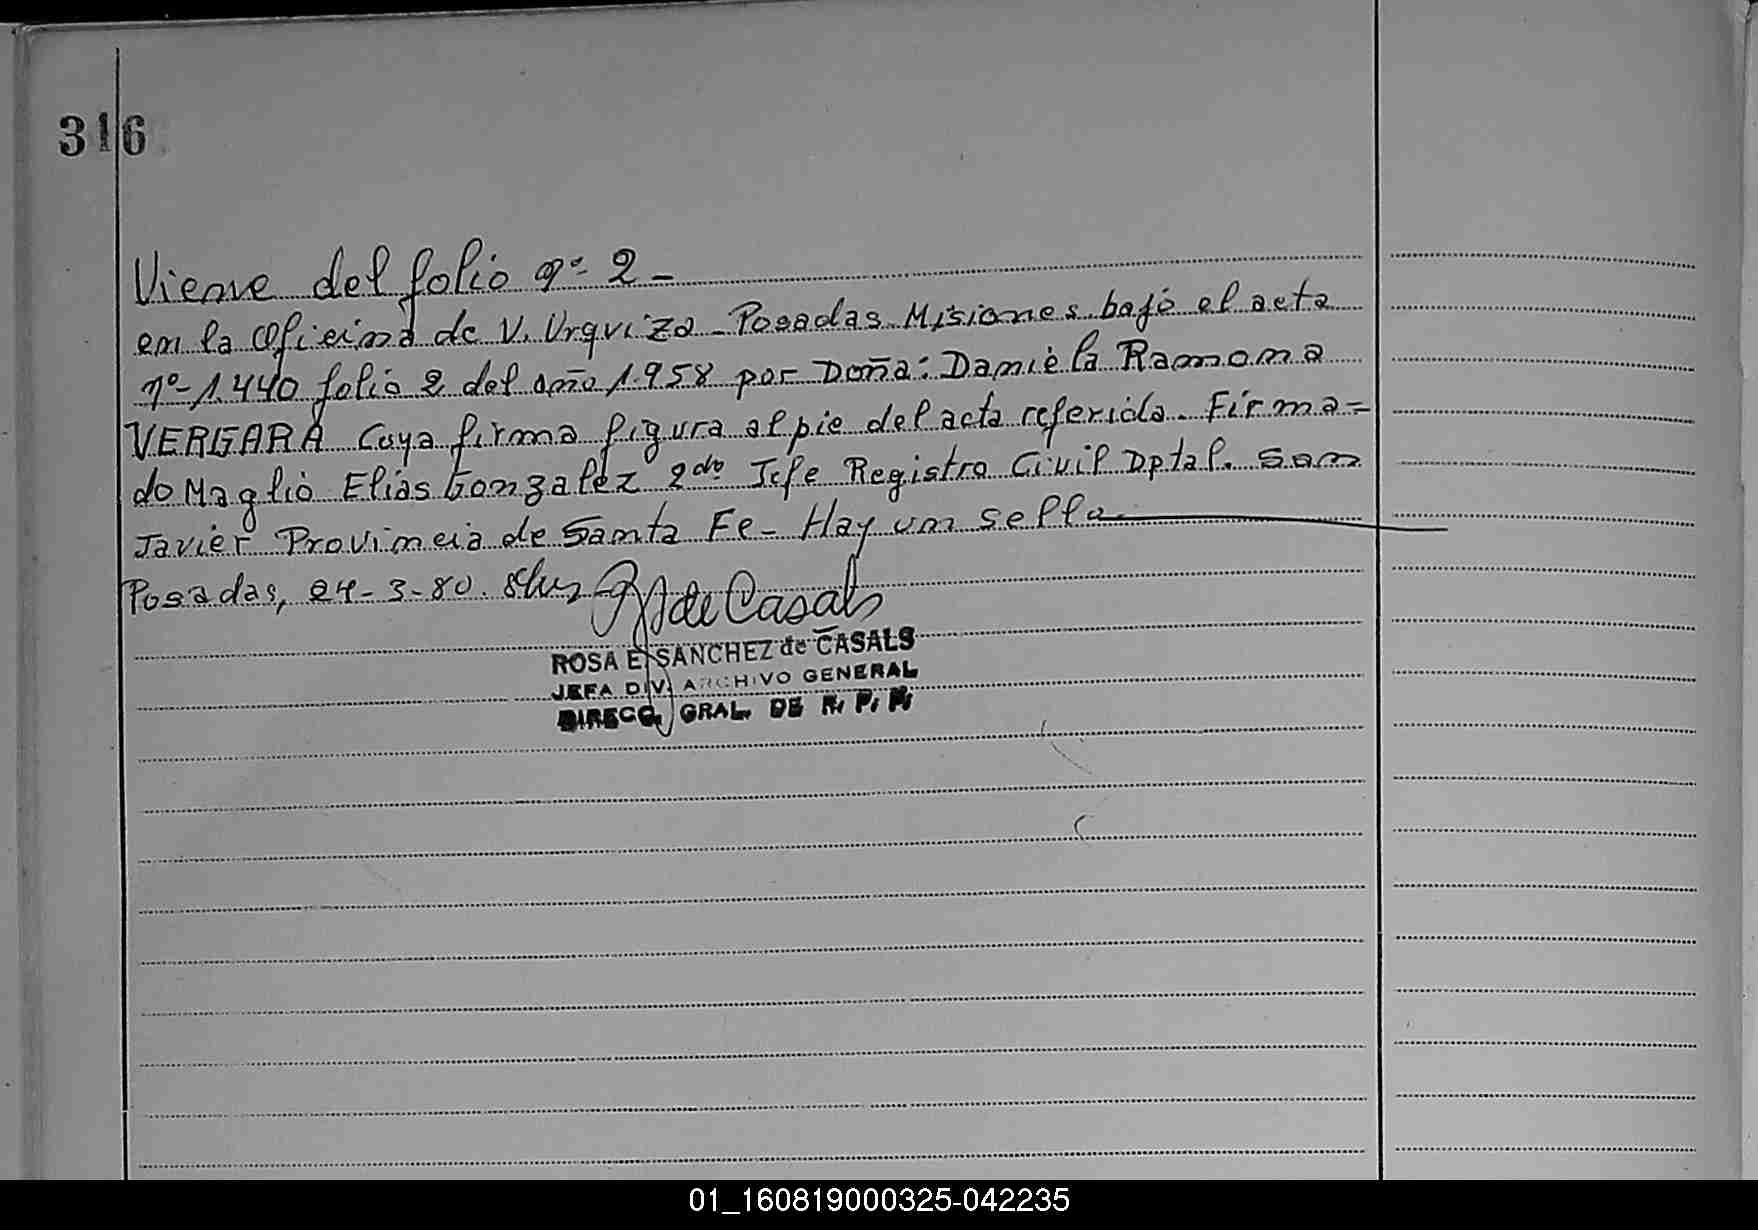 316
Viene del folio nº- 2-
en la oficina de V. Urquiza - Posadas Misiones bajo el acta
nº- 1.440 folio 2 del año 1.958 por Doña: Daniela Ramona
VERGARA Cuya firma figura al pie del acta referida. Firma=
do Maglio Elias Gonzalez 2do Jefe Registro Civil Dptal. San
Javier Provincia de Santa Fe- Hay un sello.
Posadas, 24-3-80.
de Casals
ROSA E. SANCHEZ de CASALS
JEFA DIV. ARCHIVO GENERAL
DIRECC. GRAL. DE R. P. P.
01_160819000325-042235